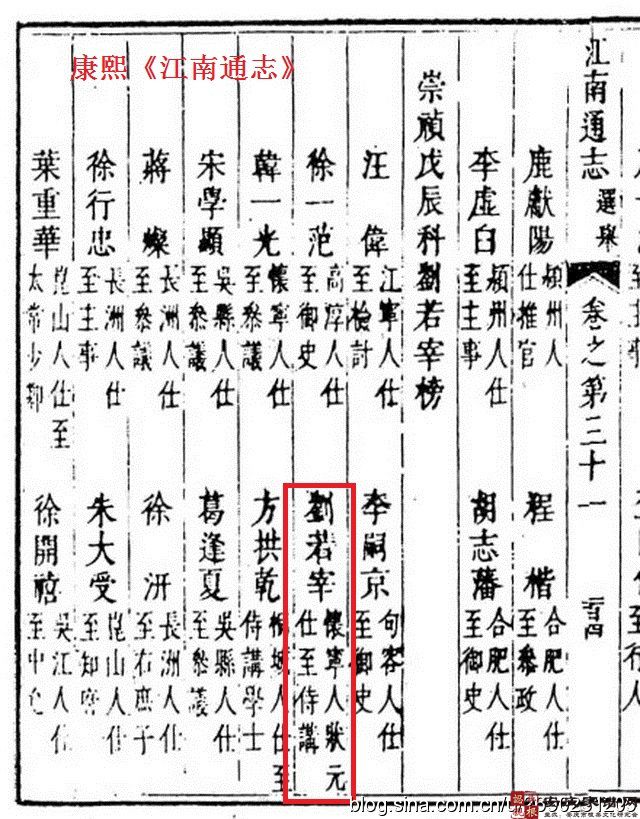 康熙《江南通志》
江南通志 選舉 卷之第三十一
鹿獻陽 潁州人仕推官
程楷 合肥人仕至參政
李虛白 潁州人仕至主事
胡志藩 合肥人仕至御史
崇禎戊辰科劉若宰榜
汪偉 江寧人仕至檢討
李嗣京 句容人仕至御史
徐一范 高淳人仕至御史
劉若宰 懷寧人狀元仕至侍講
韓一光 懷寧人仕至參議
方拱乾 桐城人仕至侍講學士
宋學顯 吳縣人仕至參議
葛逢夏 吳縣人仕至參議
蔣燦 長洲人仕至參議
徐汧 長洲人仕至右庶子
徐行忠 長洲人仕至主事
朱大受 崑山人仕至知府
葉重華 崑山人仕至太常少卿
徐開禧 吳江人仕至中允